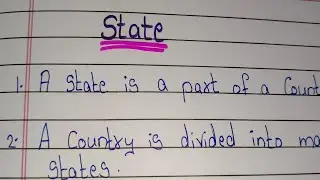 State
1. A State is a part of a Count
2. A Country is divided into ma
States.